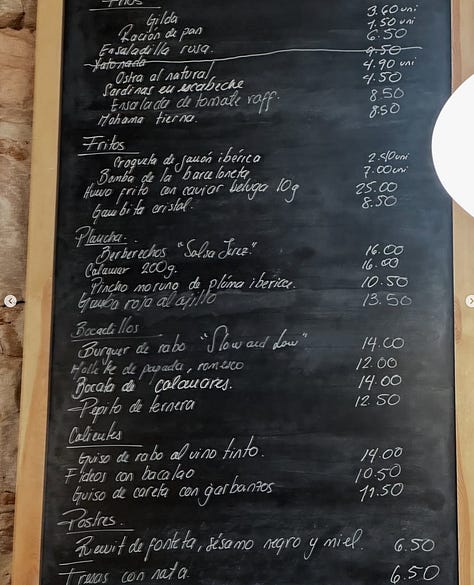 Fríos
Gilda 3.60 uni
Ración de pan 1.50 uni
Ensaladilla rusa. 6.50
Xatonada 9.50
Ostra al natural 4.90 uni
Sardinas en escabeche 4.50
Ensalada de tomate raff. 8.50
Mohama tierna. 8.50
Fritos
Croqueta de jamón ibérica 2.40 uni
Bomba de la barceloneta 7.00 uni
Huevo frito con caviar beluga 10g 25.00
Gambita cristal. 8.50
Plancha.
Berberechos "Salsa Jerez." 16.00
Calamar 200g. 16.00
Pincho moruno de plúma iberica. 10.50
Gamba roja al ajillo 13.50
Bocadillos
Burguer de rabo "Slow and Low" 14.00
Mollete de papada, romesco 12.00
Bocata de calamares. 14.00
Pepito de ternera 12.50
Calientes
Guiso de rabo al vino tinto. 14.00
Fideos con bacalao 10.50
Guiso de careta con garbanzos 11.50
Postres.
Recuit de fonteta, sésamo negro y miel. 6.50
Fresas con nata. 6.50